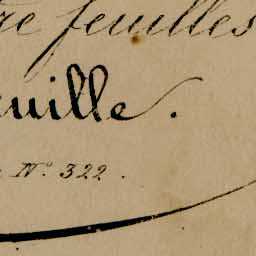 re feuilles
euille.
N.° 322.